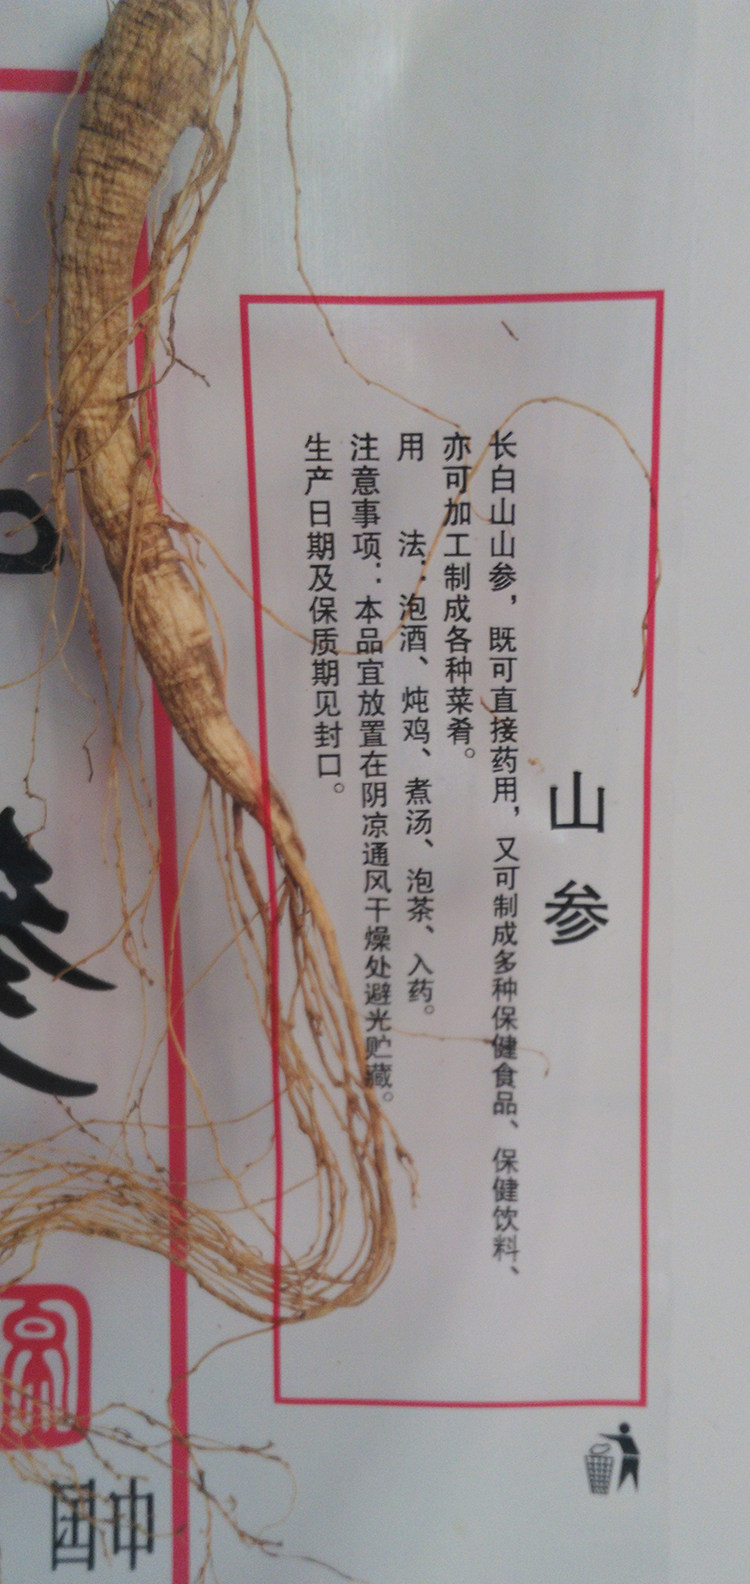 山参
长白山山参，既可直接药用，又可制成多种保健食品、保健饮料、
亦可加工制成各种菜肴。
用　　法：泡酒、炖鸡、煮汤、泡茶、入药。
注意事项：本品宜放置在阴凉通风干燥处避光贮藏。
生产日期及保质期见封口。
參
中